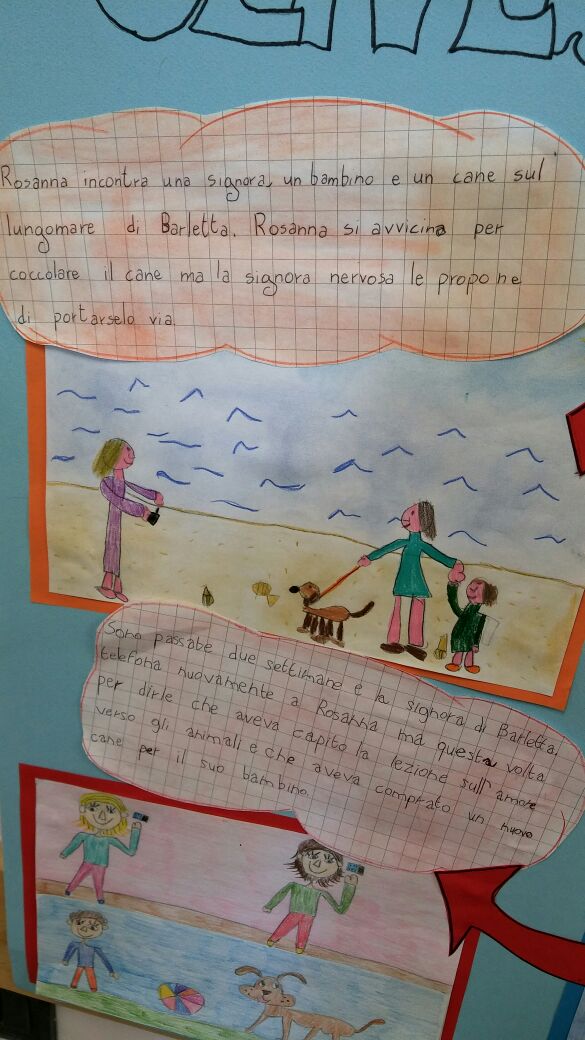 Rosanna incontra una signora, un bambino e un cane sul
lungomare di Barletta. Rosanna si avvicina per
coccolare il cane ma la signora nervosa le propone
di portarselo via.
Sono passate due settimane e la signora di Barletta,
telefona nuovamente a Rosanna ma questa volta
per dirle che aveva capito la lezione sull'amore
verso gli animali e che aveva comprato un nuovo
cane per il suo bambino.